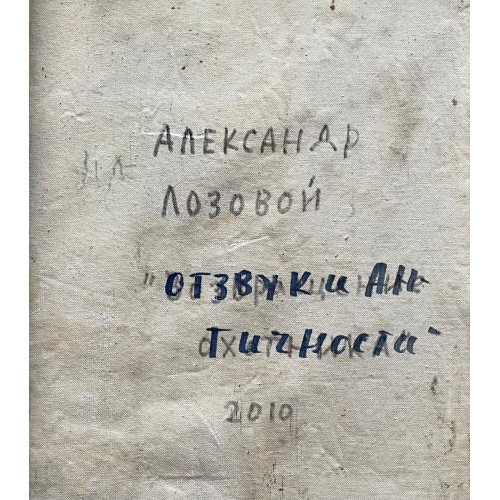 АЛЕКСАНДР
ЛОЗОВОЙ
"ОТЗВУКИ АН-
ТИЧНОСТИ"
2010